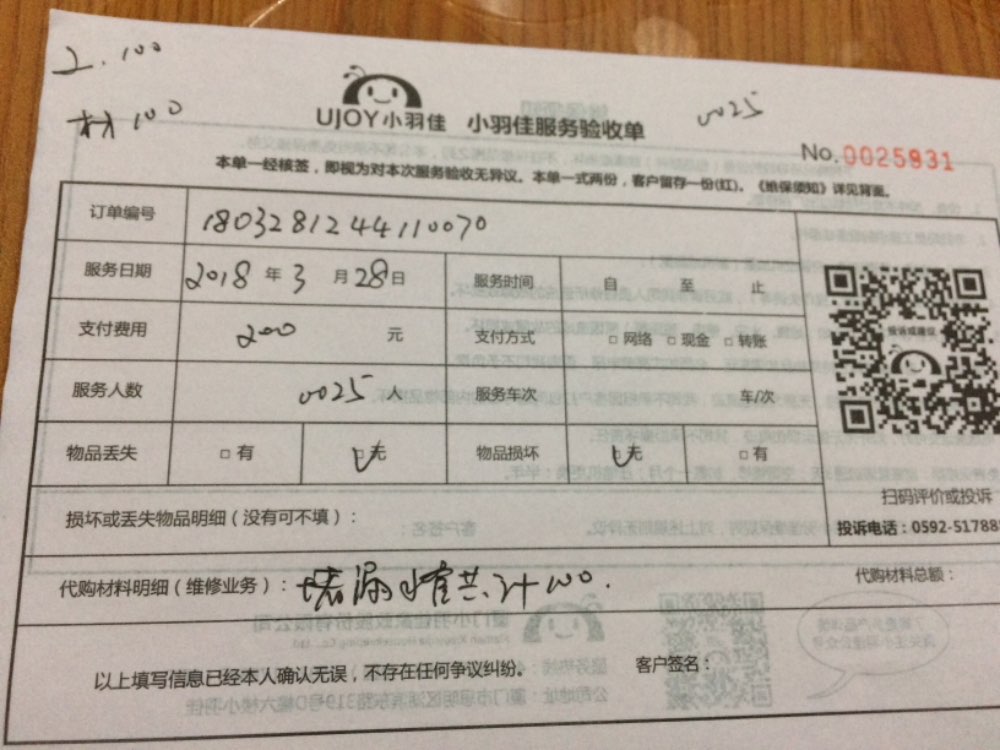 工.100
材100
0025
UJOY小羽佳 小羽佳服务验收单
No.0025931
本单一经核签，即视为对本次服务验收无异议。本单一式两份，客户留存一份(红)。《维保须知》详见背面。
订单编号 1803281244110070
服务日期 2018 年 3 月 28 日 服务时间 自 至 止
支付费用 200 元 支付方式 □ 网络 □ 现金 □ 转账
服务人数 0025 人 服务车次 车/次
物品丢失 □ 有 □ 无 物品损坏 □ 无 □ 有
投诉或建议
扫码评价或投诉
投诉电话：0592-51788
损坏或丢失物品明细（没有可不填）：
代购材料明细（维修业务）：堵漏 共计100.
代购材料总额：
以上填写信息已经本人确认无误，不存在任何争议纠纷。 客户签名：